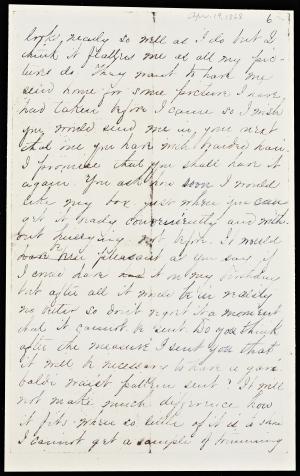 Apr. 19, 1868 6
looks nearly so well as I do but I
think it flatters me as all my pic-
tures do. They want to have me
send home for some picture I have
had taken before I came so I wish
you would send me in your next
that one you have with braided hair.
I promise that you shall have it
again. You ask how soon I would
like my box just when you can
get it ready conveniently and with-
out hurrying, not before. It would
have been pleasant as you say if
I could have had it on my birthday
but after all it would be in reality
no better so don't regret it a moment
that it cannot be sent. Do you think
after the measure I sent you that
it will be necessary to have a gari-
baldi waist pattern sent? It will
not make much difference how
it fits where so little of it is seen
I cannot get a sample of trimming